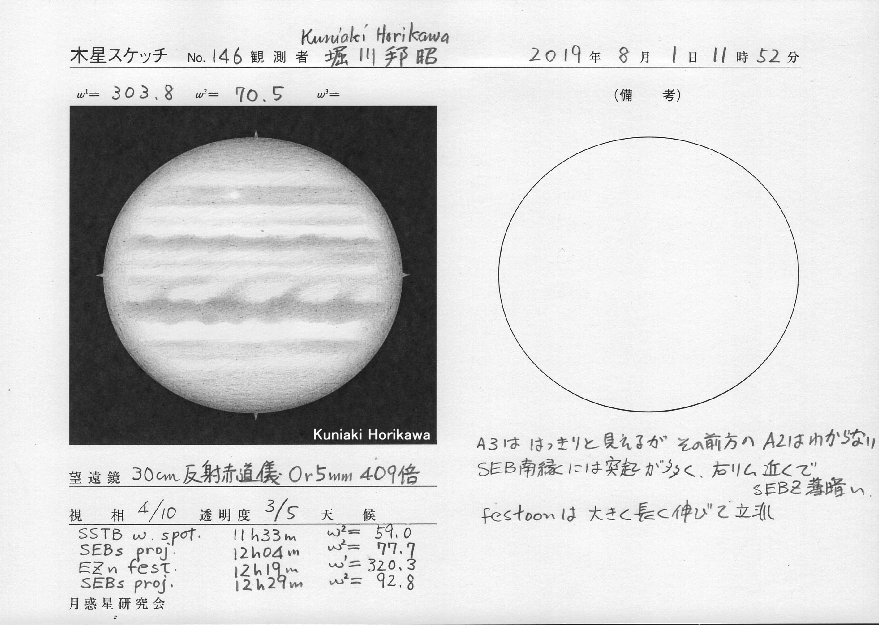 Kuniaki Horikawa
木星スケッチ No. 146 観測者 堀川邦昭 2019年 8月 1日 11時 52分
ω¹= 303.8 ω²= 70.5 ω³=
(備 考)
Kuniaki Horikawa
A3は はっきりと見えるが その前方の A2はわからない
SEB南縁には突起が多く、右リム近くで
SEBZ薄暗い.
festoonは 大きく長く伸びて立派
望遠鏡 30cm 反射赤道儀 Or5mm 409倍
視 相 4/10 透明度 3/5 天 候
SSTB w. spot. 11h33m ω²= 59.0
SEBs proj. 12h04m ω²= 77.7
EZn fest. 12h19m ω¹= 320.3
SEBs proj. 12h29m ω²= 92.8
月惑星研究会